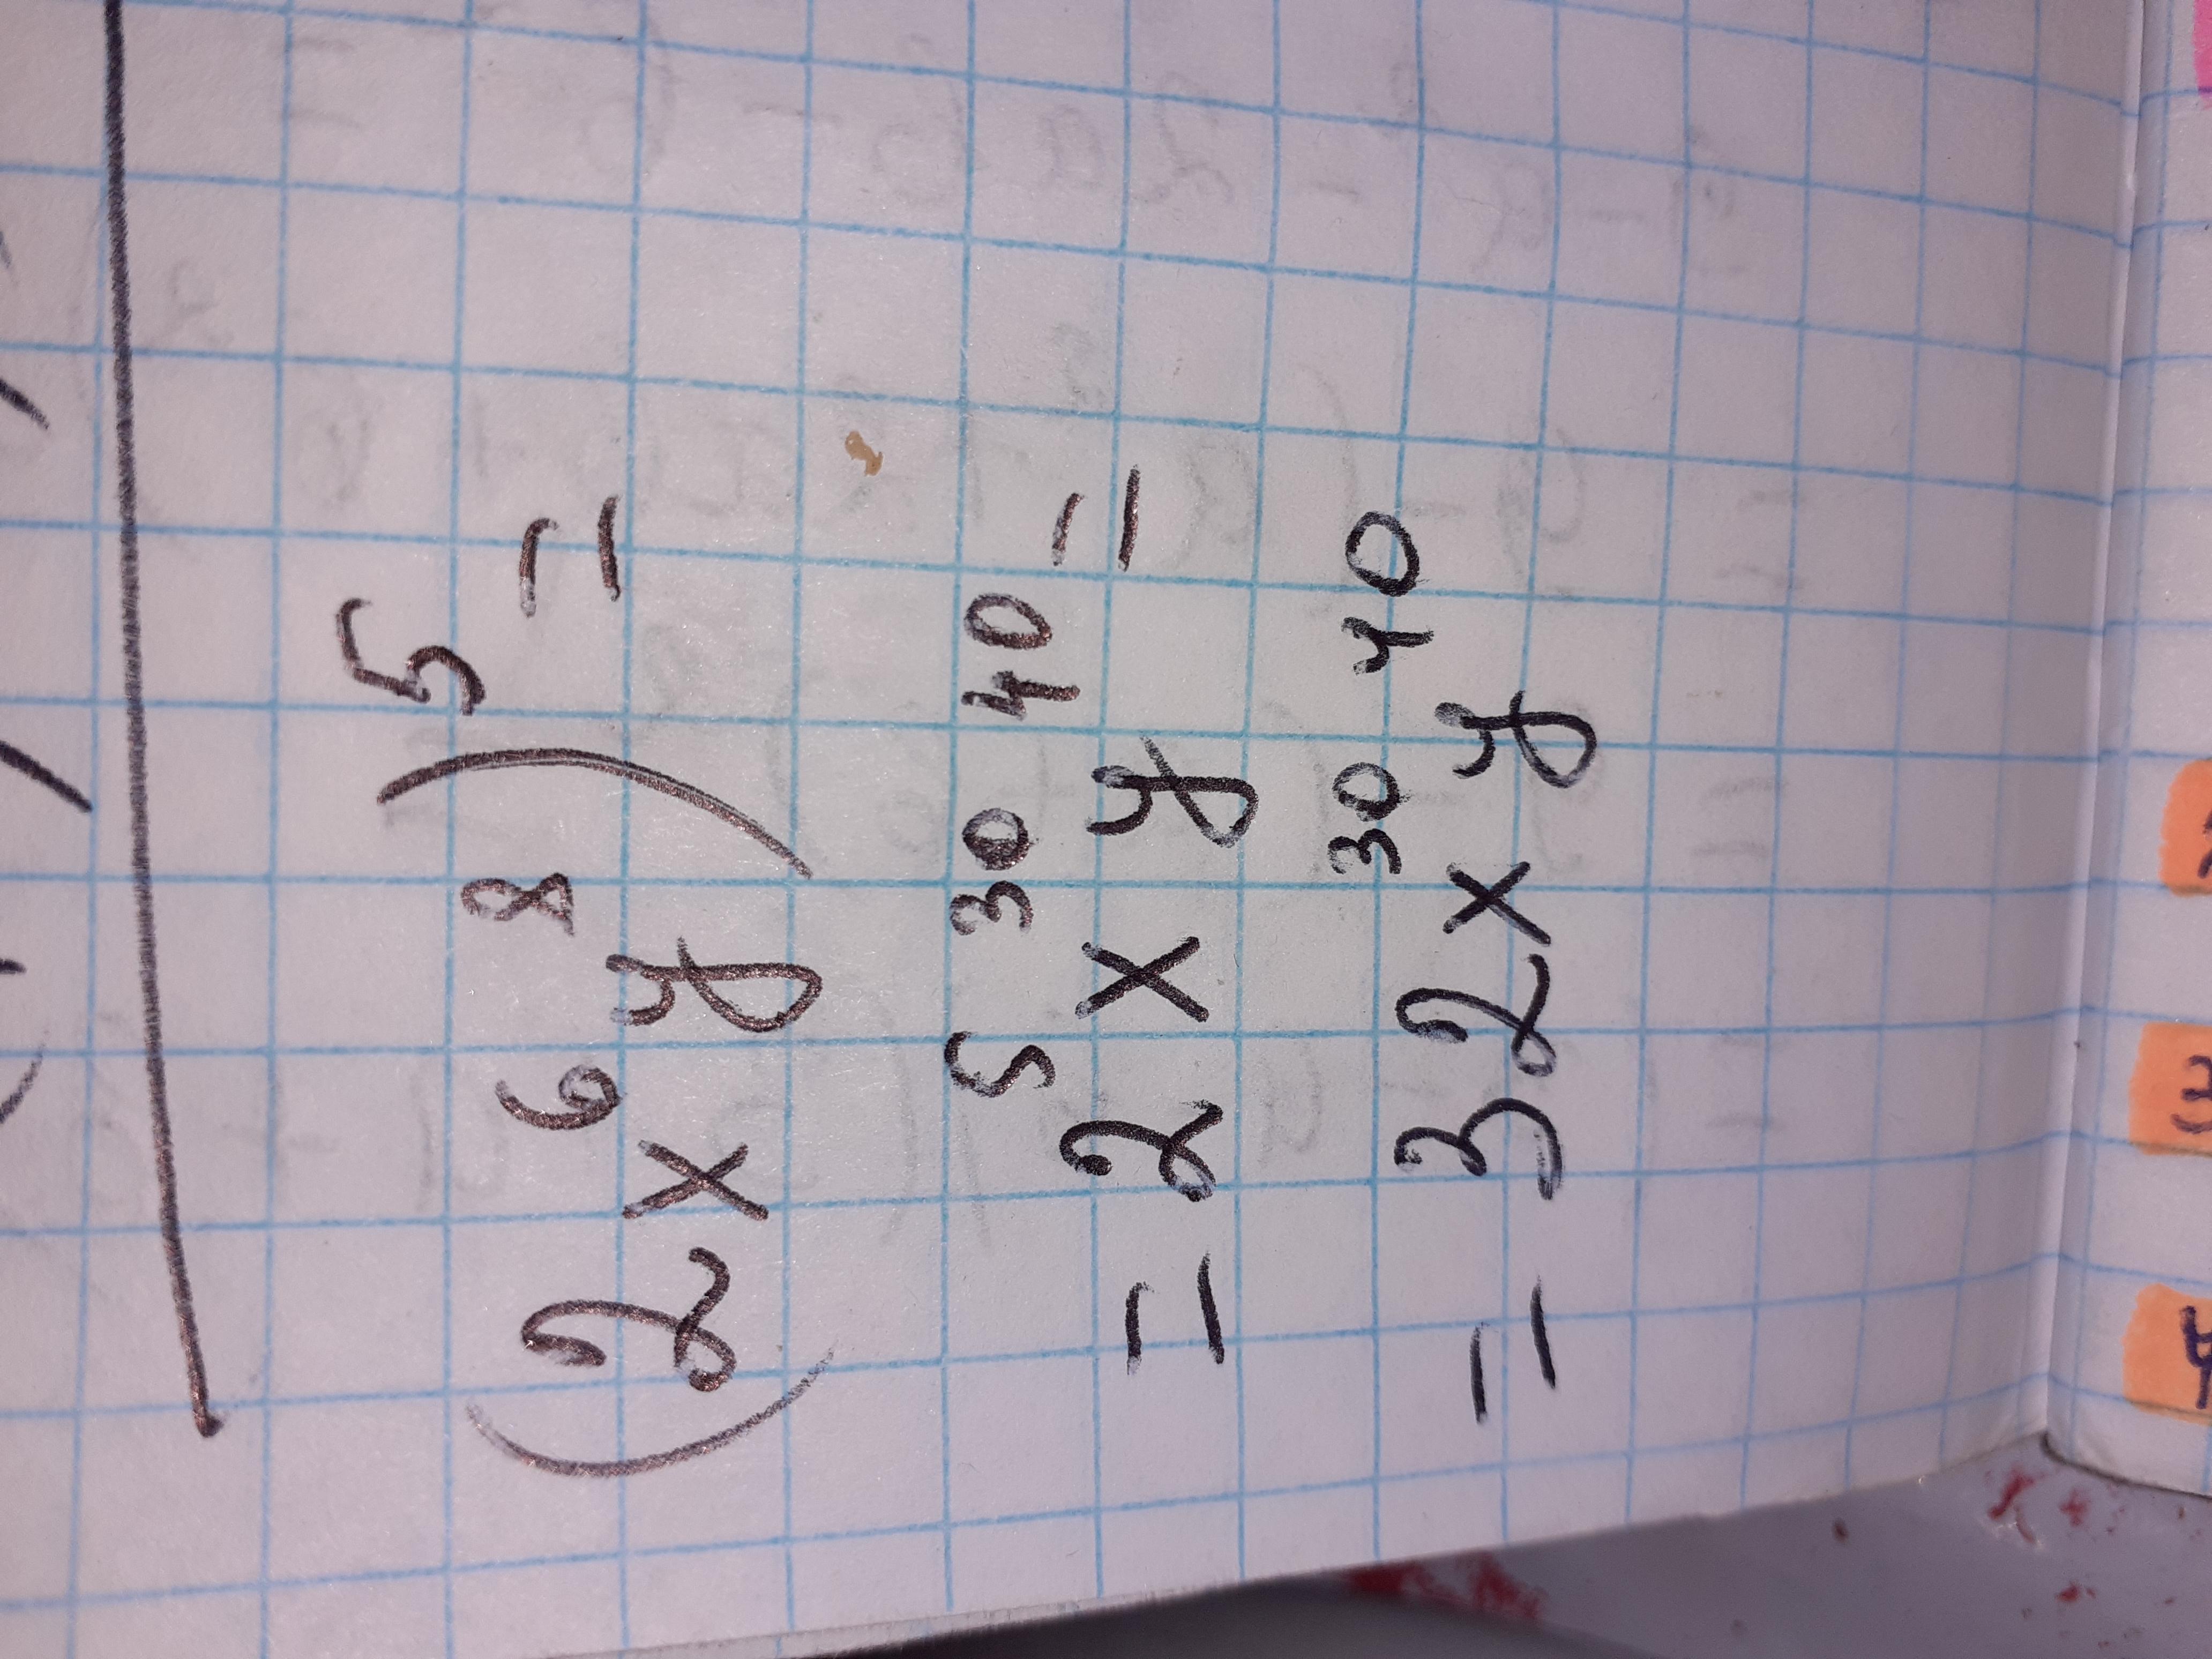 (2x⁶y⁸)⁵ =
= 2⁵x³⁰y⁴⁰ =
= 32x³⁰y⁴⁰
3
4